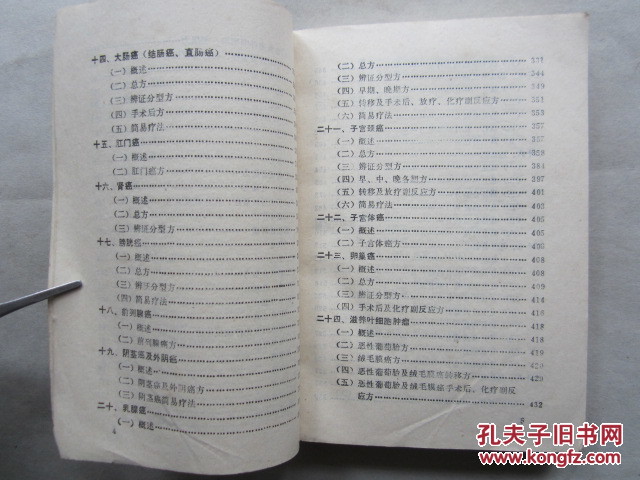 十四、大肠癌（结肠癌、直肠癌）
（一）概述
（二）总方
（三）辨证分型方
（四）手术后方
（五）简易疗法
十五、肛门癌
（一）概述
（二）肛门癌方
十六、肾癌
（一）概述
（二）总方
（三）辨证分型方
十七、膀胱癌
（一）概述
（二）总方
（三）辨证分型方
（四）简易疗法
十八、前列腺癌
（一）概述
（二）前列腺癌方
十九、阴茎癌及外阴癌
（一）概述
（二）阴茎癌及外阴癌方
（三）阴茎癌简易疗法
二十、乳腺癌
（一）概述
4
（二）总方
（三）辨证分型方 344
（四）早期、晚期方
（五）转移及手术后、放疗、化疗副反应方 351
（六）简易疗法
二十一、子宫颈癌 357
（一）概述 357
（二）总方
（三）辨证分型方
（四）早、中、晚各期方
（五）转移及放疗副反应方 401
（六）简易疗法
二十二、子宫体癌 405
（一）概述 405
（二）子宫体癌方
二十三、卵巢癌
（一）概述 408
（二）总方 409
（三）辨证分型方
（四）手术后及化疗副反应方
二十四、滋养叶细胞肿瘤
（一）概述
（二）恶性葡萄胎方
（三）绒毛膜癌方
（四）恶性葡萄胎及绒毛膜癌转移方 429
（五）恶性葡萄胎及绒毛膜癌手术后、化疗副反
应方 432
5
孔夫子旧书网
www.kongfz.com